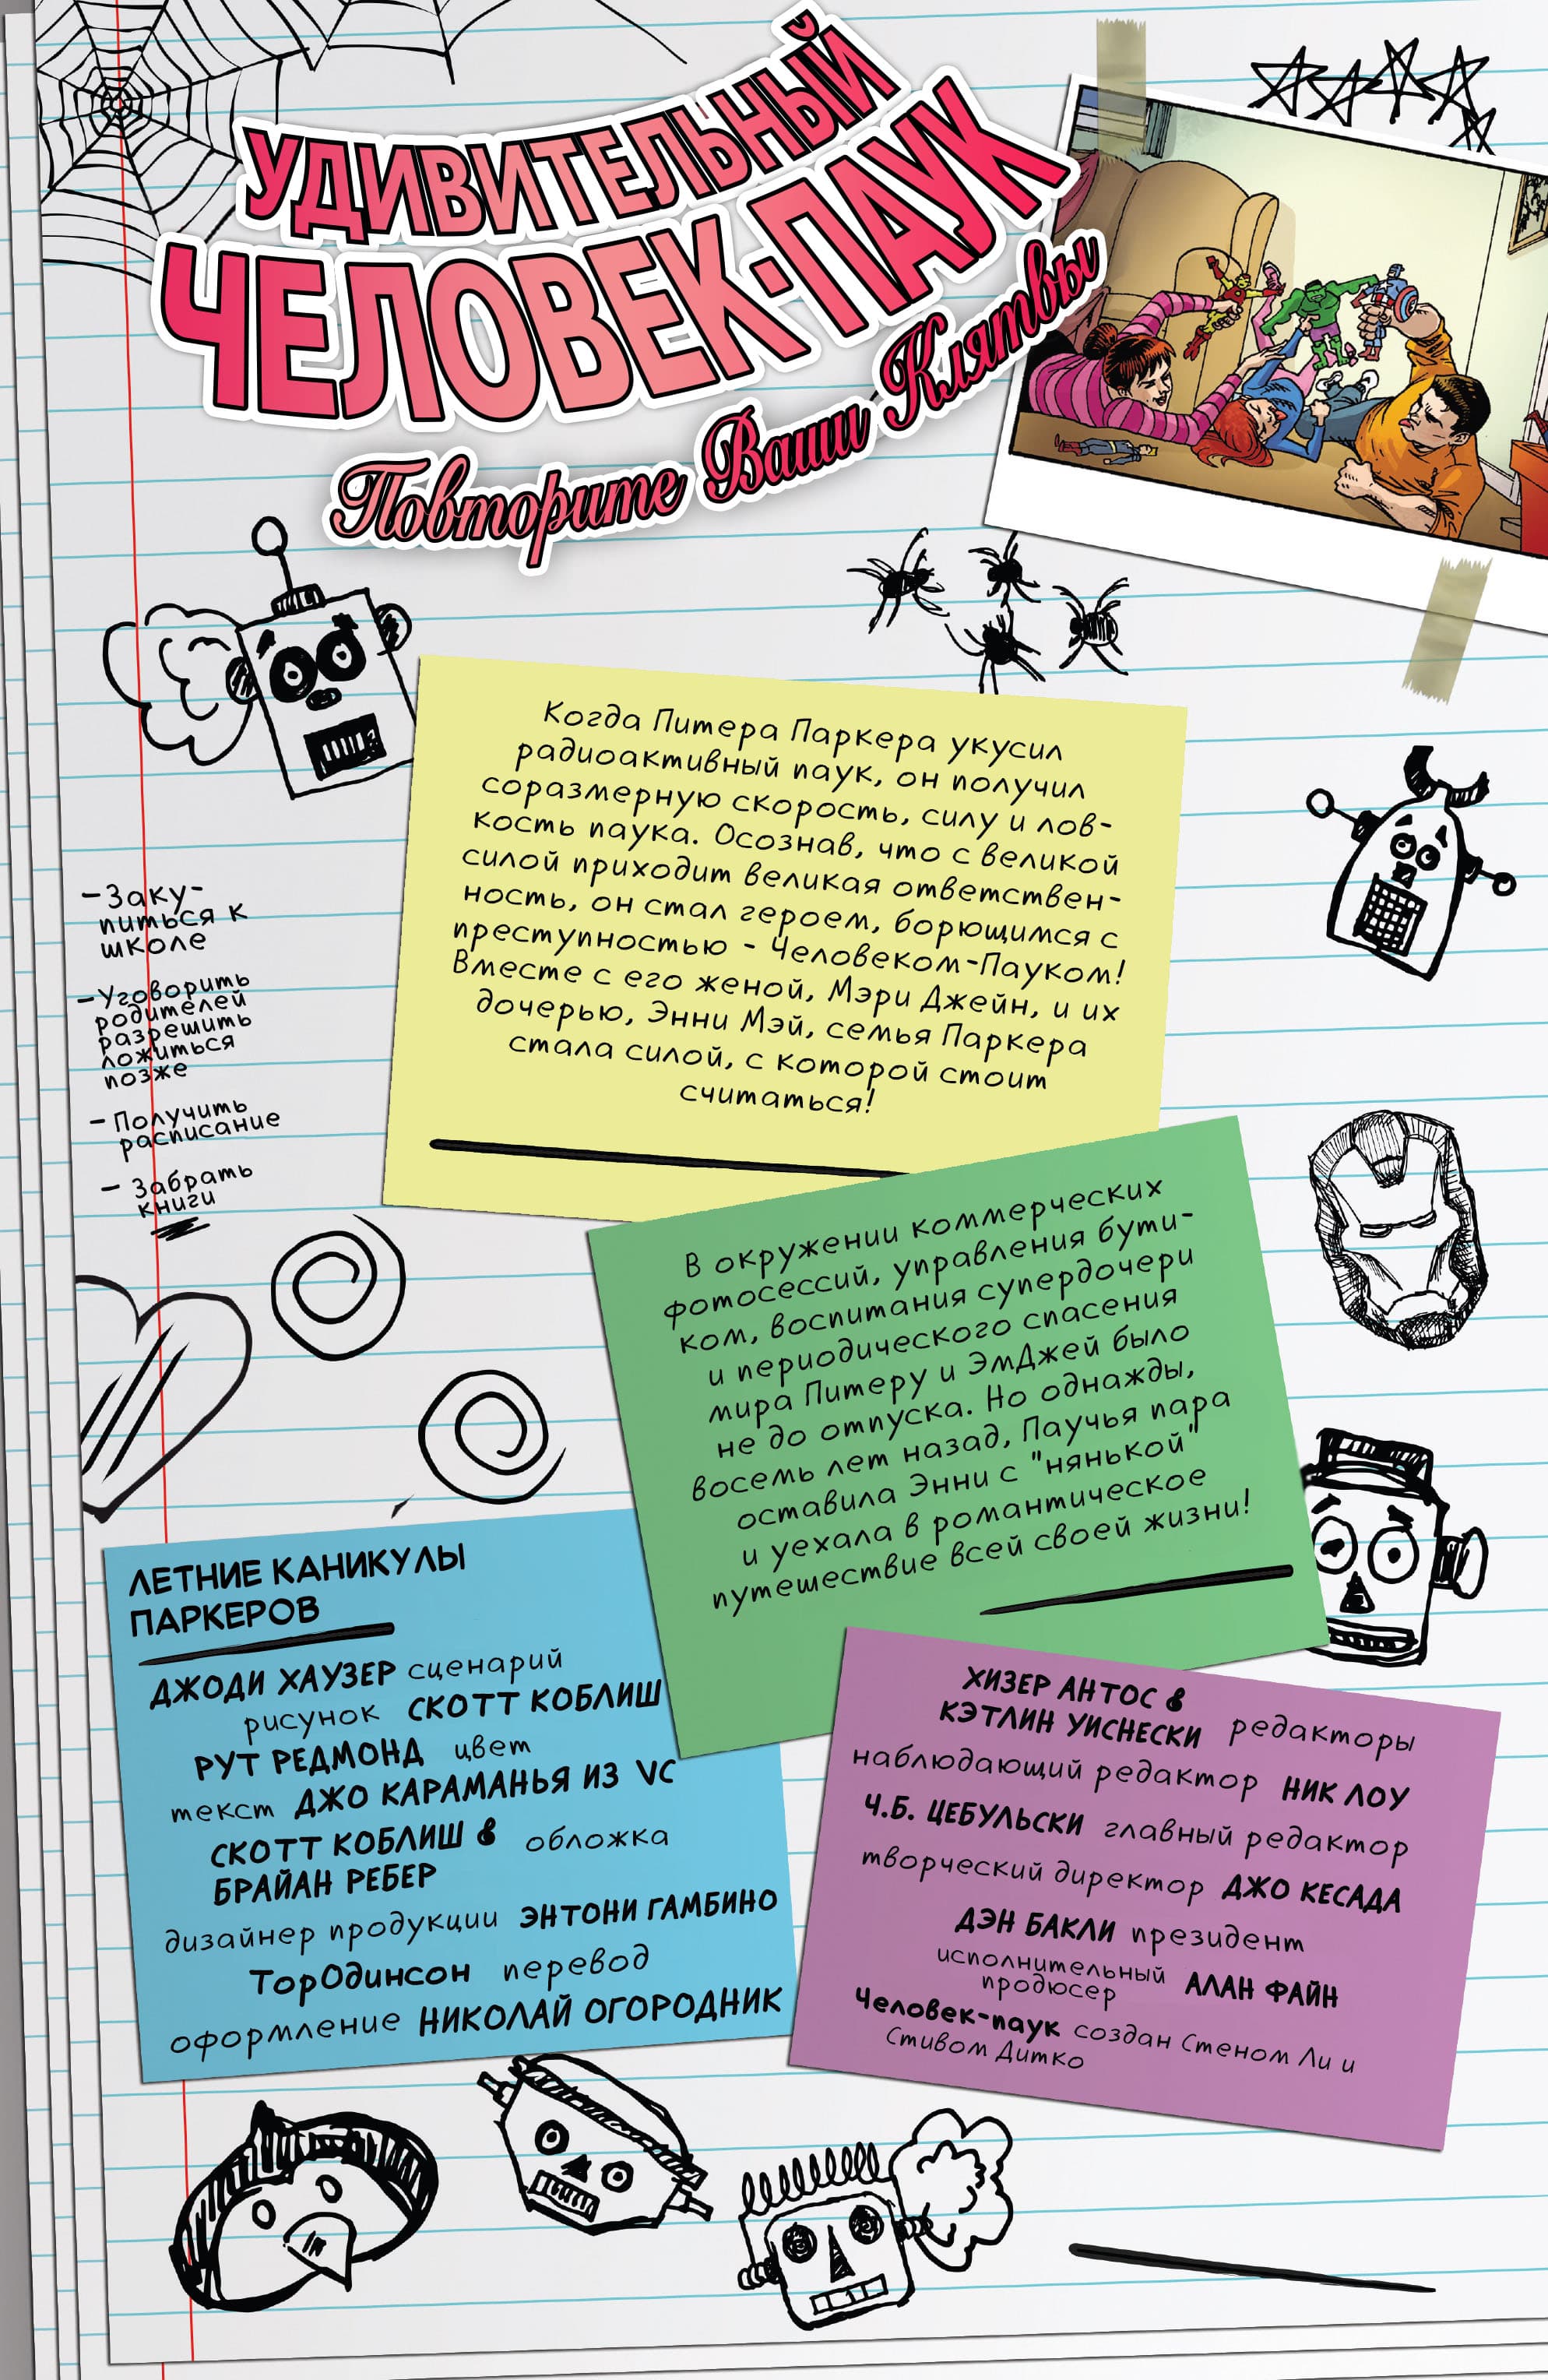 УДИВИТЕЛЬНЫЙ
ЧЕЛОВЕК-ПАУК
Повторите Ваши Клятвы
Когда Питера Паркера укусил
радиоактивный паук, он получил
соразмерную скорость, силу и лов-
кость паука. Осознав, что с великой
силой приходит великая ответствен-
ность, он стал героем, борющимся с
преступностью - Человеком-Пауком!
Вместе с его женой, Мэри Джейн, и их
дочерью, Энни Мэй, семья Паркера
стала силой, с которой стоит
считаться!
-Заку-
питься к
школе
-Уговорить
родителей
разрешить
ложиться
позже
- Получить
расписание
- Забрать
книги
В окружении коммерческих
фотосессий, управления бути-
ком, воспитания супердочери
и периодического спасения
мира Питеру и ЭмДжей было
не до отпуска. Но однажды,
восемь лет назад, Паучья пара
оставила Энни с "нянькой"
и уехала в романтическое
путешествие всей своей жизни!
ЛЕТНИЕ КАНИКУЛЫ
ПАРКЕРОВ
ДЖОДИ ХАУЗЕР сценарий
рисунок СКОТТ КОБЛИШ
РУТ РЕДМОНД цвет
текст ДЖО КАРАМАНЬЯ ИЗ VC
СКОТТ КОБЛИШ & обложка
БРАЙАН РЕБЕР
дизайнер продукции ЭНТОНИ ГАМБИНО
ТорОдинсон перевод
оформление НИКОЛАЙ ОГОРОДНИК
ХИЗЕР АНТОС &
КЭТЛИН УИСНЕСКИ редакторы
наблюдающий редактор НИК ЛОУ
Ч.Б. ЦЕБУЛЬСКИ главный редактор
творческий директор ДЖО КЕСАДА
ДЭН БАКЛИ президент
исполнительный
продюсер АЛАН ФАЙН
Человек-паук создан Стеном Ли и
Стивом Дитко